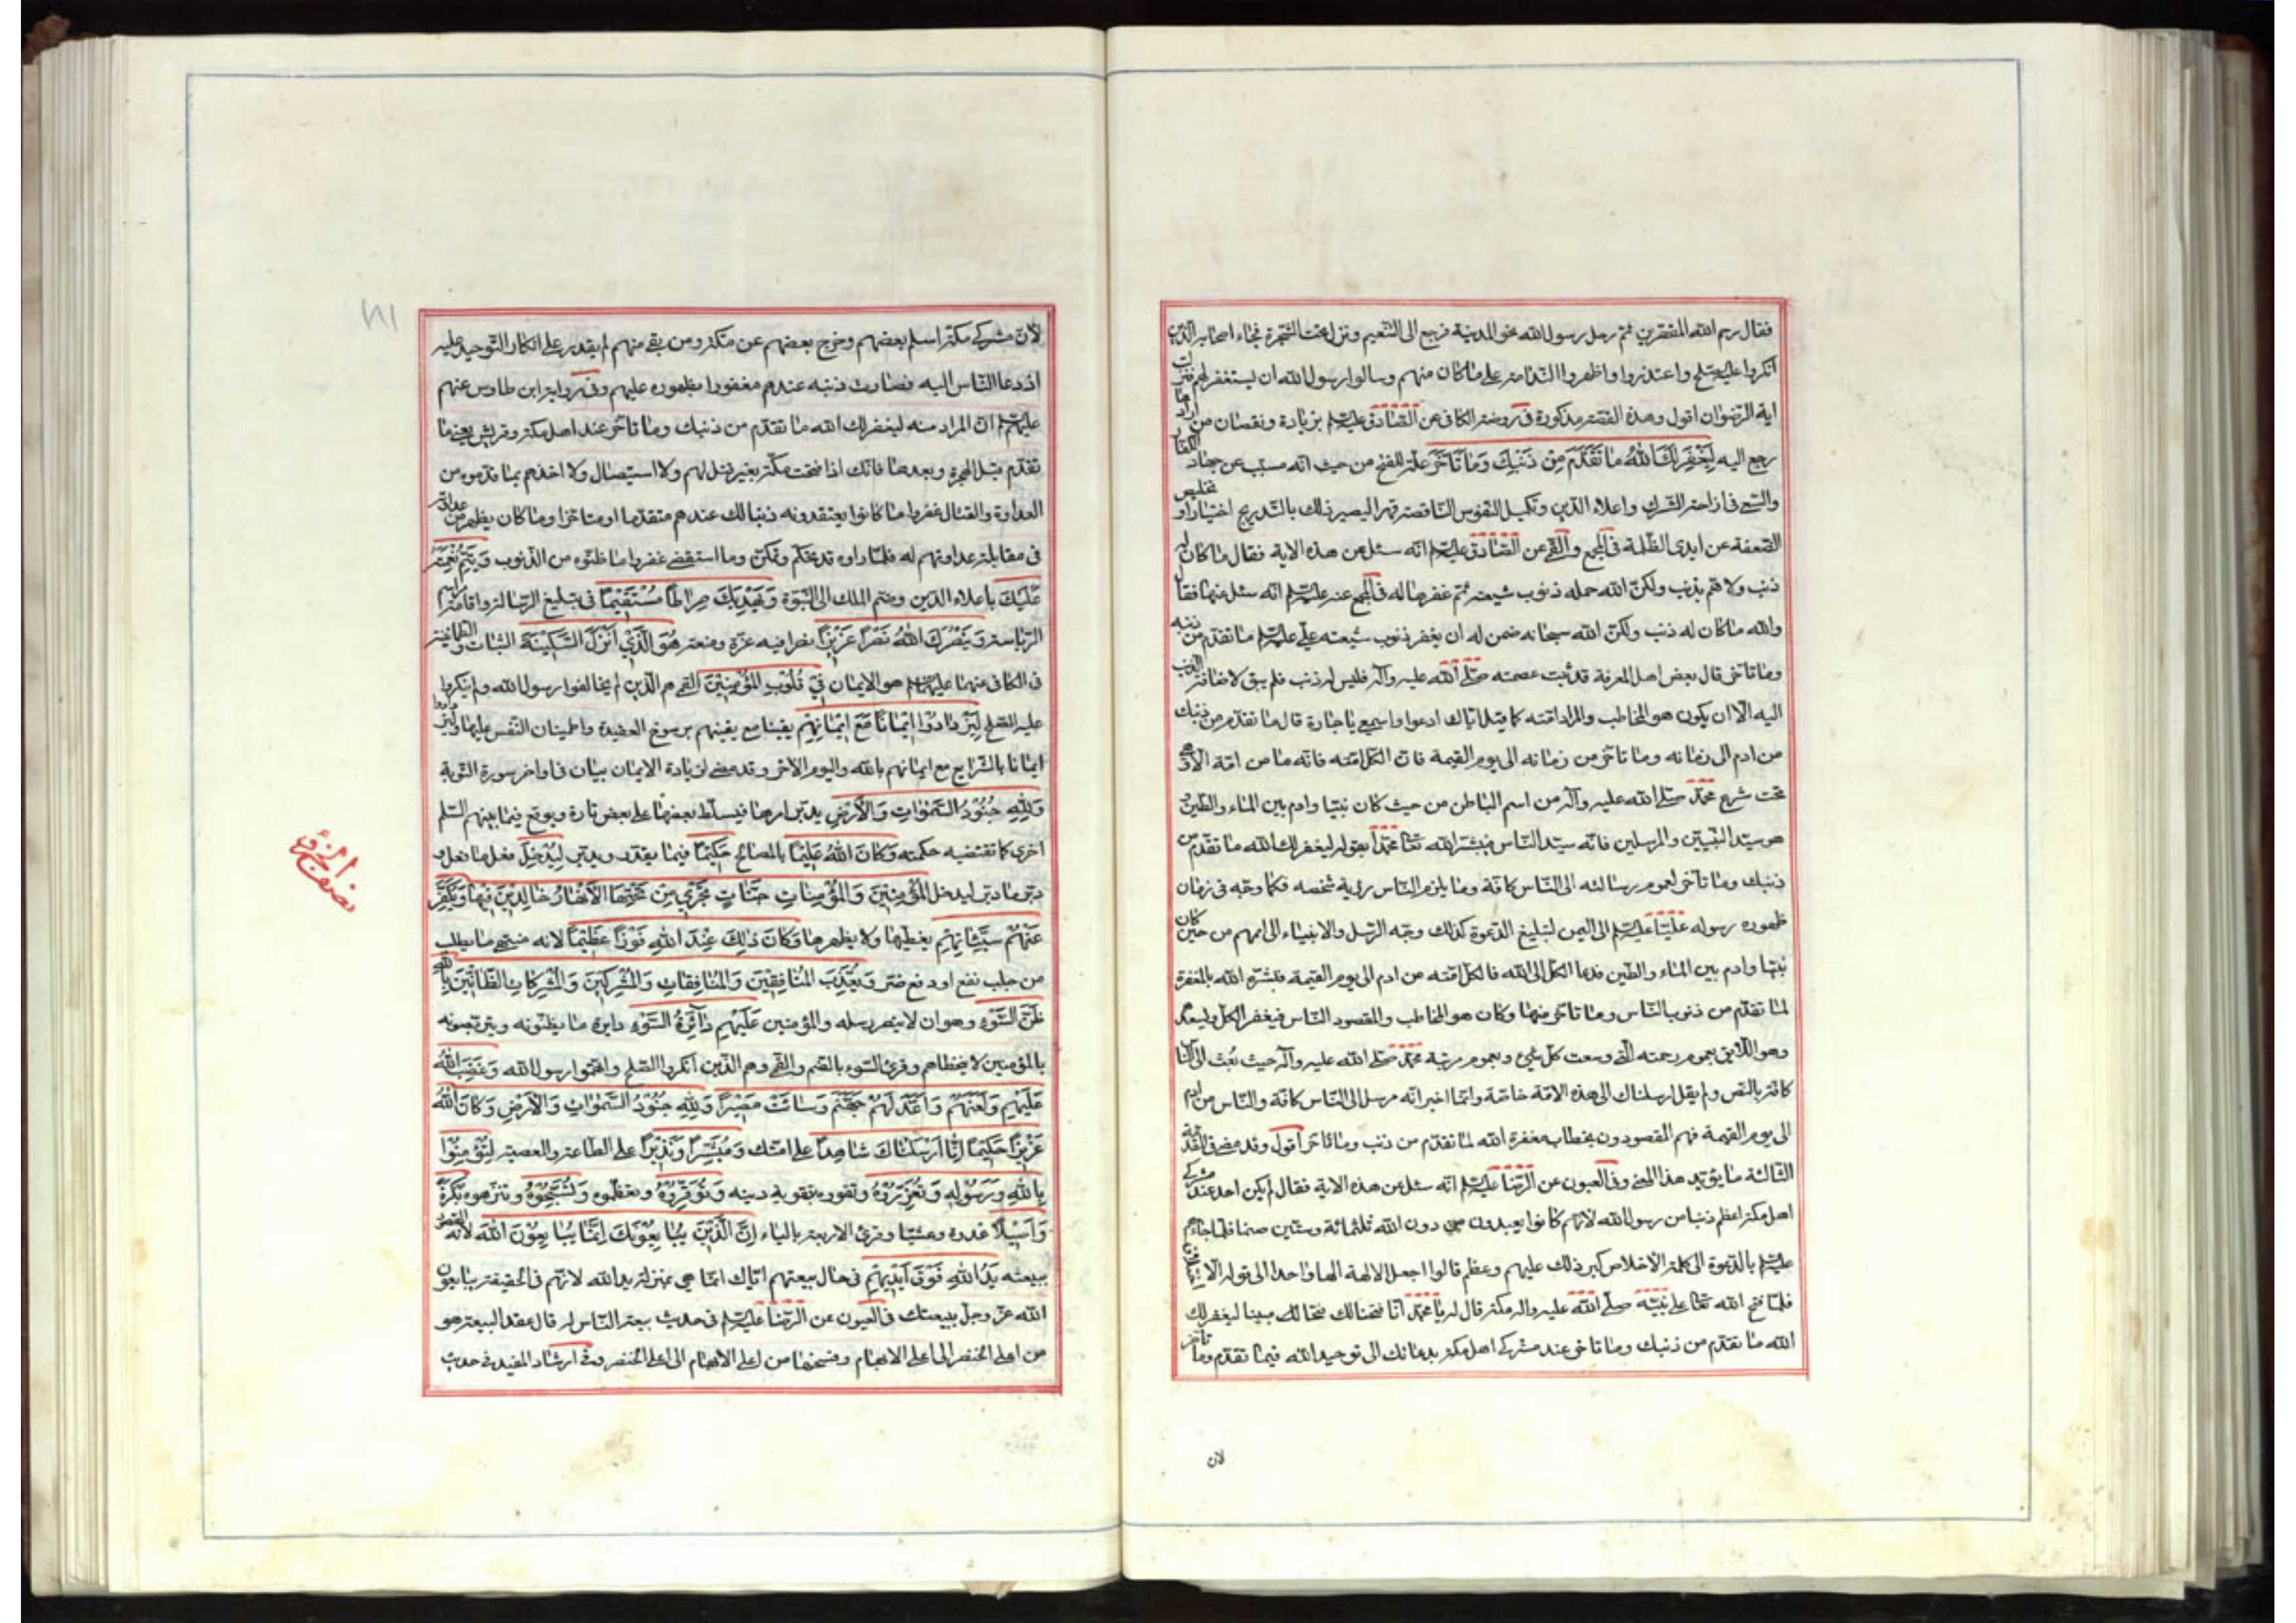 فقال رحم الله المقصرين ثم رحل رسول الله نحو المدينة فرجع الى التنعيم ونزل تحت الشجرة فجاء اصحابه الذين
انكروا عليه الصلح واعتذروا واظهروا الندامة على ما كان منهم وسالوا رسول الله ان يستغفر لهم فنزلت
اية الرضوان اقول وهذه القصة مذكورة في روضة الكافي عن الصادق عليه السلم بزيادة ونقصان من اراد
رجع اليه لِيَغْفِرَ لَكَ اللهُ مٰا تَقَدَّمَ مِنْ ذَنْبِكَ وَمٰا تَأَخَّرَ علة للفتح من حيث انه مسبب عن جهاد الكفار
والسعي في ازاحة الشرك واعلاء الدين وتكميل النفوس الناقصة قهرا ليصير ذلك بالتدريج اختيارا وتخليص
الضعفة عن ايدي الظلمة في المجمع والقمي عن الصادق عليه السلم انه سئل عن هذه الاية فقال ما كان له
ذنب ولا هم بذنب ولكن الله حمله ذنوب شيعته ثم غفرها له في المجمع عنه عليه السلم انه سئل عنها فقال
والله ما كان له ذنب ولكن الله سبحانه ضمن له ان يغفر ذنوب شيعة علي عليه السلم ما تقدم من ذنبه
وما تاخر قال بعض اهل المعرفة قد ثبت عصمته صلى الله عليه وآله فليس له ذنب فلم يبق لاضافة الذنب
اليه الا ان يكون هو المخاطب والمراد امته كما قيل اياك ادعو واسمعي يا جارة قال ما تقدم من ذنبك
من ادم الى زمانه وما تاخر من زمانه الى يوم القيمة فان الكل امته فانه ما من امة الا وهي
تحت شرع محمد صلى الله عليه وآله من اسم الباطن من حيث كان نبيا وادم بين الماء والطين و
هو سيد النبيين والمرسلين فانه سيد الناس فبشر الله تعا محمدا بقوله ليغفر لك الله ما تقدم من
ذنبك وما تاخر لعموم رسالته الى الناس كافة وما يلزم الناس رؤية شخصه فكما وجه في زمان
ظهوره رسوله عليا عليه السلم الى اليمن لتبليغ الدعوة كذلك وجه الرسل والانبياء الى اممهم من حين كان
نبيا وادم بين الماء والطين فدعا الكل الى الله فالكل امته من ادم الى يوم القيمة فبشره الله بالمغفرة
لما تقدم من ذنوب الناس وما تاخر منها وكان هو المخاطب والمقصود الناس فيغفر الكل ويسعد
وهو اللايق بعموم رحمته التي وسعت كل شيء وبعموم مرتبة محمد صلى الله عليه وآله حيث بعث الى الناس
كافة بالنص ولم يقل ارسلناك الى هذه الامة خاصة وانما اخبر انه مرسل الى الناس كافة والناس من ادم
الى يوم القيمة فهم المقصودون بخطاب مغفرة الله لما تقدم من ذنب وما تاخر اقول وقد مضى في المقدمة
الثالثة ما يؤيد هذا المعنى وفي العيون عن الرضا عليه السلم انه سئل عن هذه الاية فقال لم يكن احد عند مشركي
اهل مكة اعظم ذنبا من رسول الله لانهم كانوا يعبدون من دون الله ثلثمائة وستين صنما فلما جاءهم
عليه السلم بالدعوة الى كلمة الاخلاص كبر ذلك عليهم وعظم قالوا اجعل الالهة الها واحدا الى قوله الا
فلما فتح الله تعا على نبيه صلى الله عليه وآله مكة قال له يا محمد انا فتحنا لك فتحا لك مبينا ليغفر لك
الله ما تقدم من ذنبك وما تاخر عند مشركي اهل مكة بدعائك الى توحيد الله فيما تقدم وما تاخر
لان
لان مشركي مكة اسلم بعضهم وخرج بعضهم عن مكة ومن بقي منهم لم يقدر على انكار التوحيد عليه
اذ دعا الناس اليه فصارت ذنبه عندهم مغفورا بظهوره عليهم وفي رواية ابن طاوس عنهم
عليهم السلم ان المراد منه ليغفر لك الله ما تقدم من ذنبك وما تاخر عند اهل مكة وقريش يعني ما
تقدم قبل الهجرة وبعدها فانك اذا فتحت مكة بغير قتل لهم ولا استيصال ولا اخذهم بما قدموه من
العداوة والقتال غفروا ما كانوا يعتقدونه ذنبا لك عندهم متقدما او متاخرا وما كان يظهر من عداوته
في مقابلة عداوتهم له فلما راوه قد تحكم وتمكن وما استقصى غفروا ما ظنوه من الذنوب وَيُتِمَّ نِعْمَتَهُ
عَلَيْكَ باعلاء الدين وضم الملك الى النبوة وَيَهْدِيَكَ صِرٰاطًا مُسْتَقِيمًا في تبليغ الرسالة واقامة مراسم
الرياسة وَيَنْصُرَكَ اللهُ نَصْرًا عَزِيزًا نصرا فيه عزة ومنعة هُوَ الَّذِي اَنْزَلَ السَّكِينَةَ الثبات والطمانينة
في الكافي عنهما عليهما السلم هو الايمان فِي قُلُوبِ المُؤْمِنِينَ القمي هم الذين لم يخالفوا رسول الله ولم ينكروا
عليه الصلح لِيَزْدٰادُوا اِيمٰانًا مَعَ اِيمٰانِهِمْ يقينا مع يقينهم برسوخ العقيدة واطمينان النفس عليها وليزدادوا
ايمانا بالشرايع مع ايمانهم بالله واليوم الاخر وقد مضى لزيادة الايمان بيان في اواخر سورة التوبة
وَلِلّٰهِ جُنُودُ السَّمٰوٰاتِ وَالْاَرْضِ يدبر امرها فيسلط بعضها على بعض تارة ويوقع فيما بينهم السلم
اخرى كما تقتضيه حكمته وَكٰانَ اللهُ عَلِيمًا بالمصالح حَكِيمًا فيما يقدر ويدبر لِيُدْخِلَ فعل ما فعل و
دبر ما دبر ليدخل المُؤْمِنِينَ وَالمُؤْمِنٰاتِ جَنّٰاتٍ تَجْرِي مِنْ تَحْتِهَا الْاَنْهٰارُ خٰالِدِينَ فِيهٰا وَيُكَفِّرَ
عَنْهُمْ سَيِّئٰاتِهِمْ يغطيها ولا يظهرها وَكٰانَ ذٰلِكَ عِنْدَ اللهِ فَوْزًا عَظِيمًا لانه منتهى ما يطلب
من جلب نفع او دفع ضر وَيُعَذِّبَ المُنٰافِقِينَ وَالمُنٰافِقٰاتِ وَالمُشْرِكِينَ وَالمُشْرِكٰاتِ الظّٰانِّينَ بِاللهِ
ظَنَّ السَّوْءِ وهو ان لا ينصر رسله والمؤمنين عَلَيْهِمْ دٰآئِرَةُ السَّوْءِ دايرة ما يظنونه ويتربصونه
بالمؤمنين لا يتخطاهم وقرئ السوء بالضم والقمي وهم الذين انكروا الصلح واتهموا رسول الله وَغَضِبَ اللهُ
عَلَيْهِمْ وَلَعَنَهُمْ وَاَعَدَّ لَهُمْ جَهَنَّمَ وَسٰاءَتْ مَصِيرًا وَلِلّٰهِ جُنُودُ السَّمٰوٰاتِ وَالْاَرْضِ وَكٰانَ اللهُ
عَزِيزًا حَكِيمًا اِنّٰا اَرْسَلْنٰاكَ شٰاهِدًا على امتك وَمُبَشِّرًا وَنَذِيرًا على الطاعة والمعصية لِتُؤْمِنُوا
بِاللهِ وَرَسُولِهِ وَتُعَزِّرُوهُ وتقووه بتقوية دينه وَتُوَقِّرُوهُ وتعظموه وَتُسَبِّحُوهُ وتنزهوه بُكْرَةً
وَاَصِيلًا غدوة وعشيا وقرئ الاربعة بالياء اِنَّ الَّذِينَ يُبٰايِعُونَكَ اِنَّمٰا يُبٰايِعُونَ اللهَ لانه المقصود
ببيعته يَدُ اللهِ فَوْقَ اَيْدِيهِمْ في حال بيعتهم اياك انما هي بمنزلة يد الله لانهم في الحقيقة يبايعون
الله عز وجل ببيعتك في العيون عن الرضا عليه السلم في حديث بيعة الناس له قال عقد البيعة هو
من اعلى الخنصر الى اعلى الابهام وفسخها من اعلى الابهام الى اعلى الخنصر وفي ارشاد المفيد في حديث
نصف الجزؤ